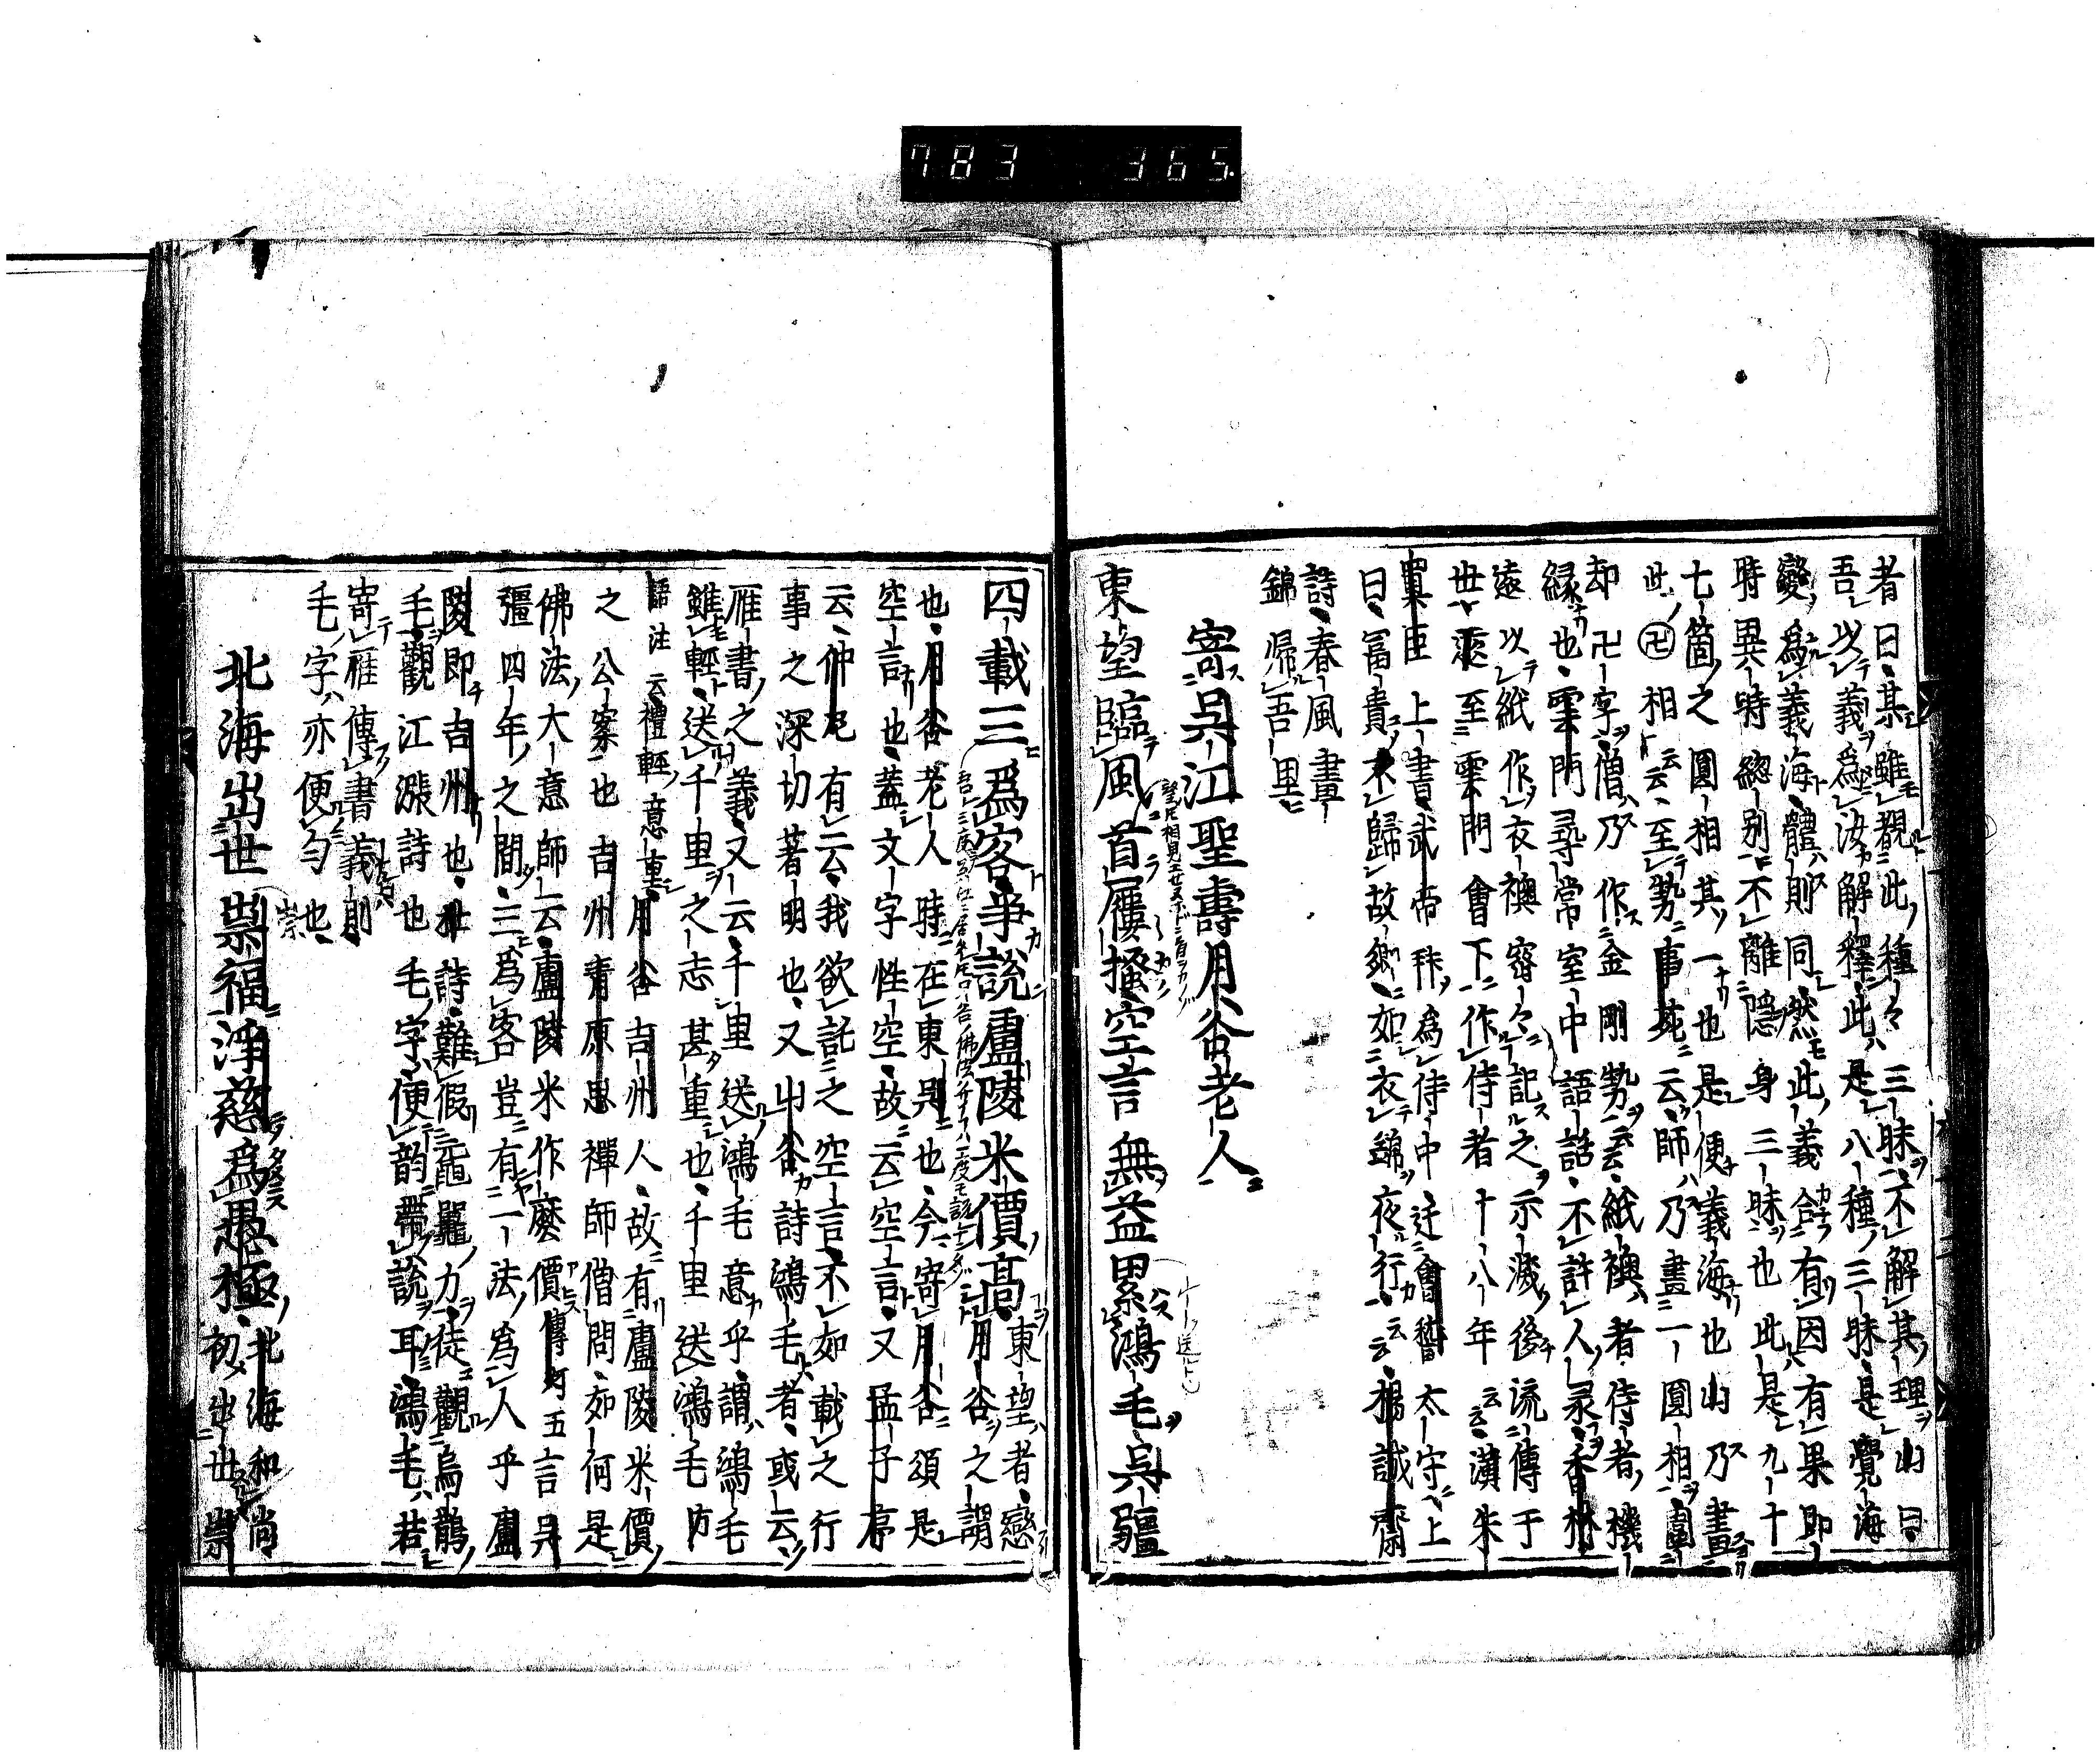 783 365.
者曰、某雖覩此種々三昧、不解其理山曰、
吾以義爲汝解釋、此是八種三昧、是覺海
變爲義海、體則同、然此義合有因有果即
時異時總別、不離隱身三昧也此是九十
七箇之圓相其一也是便義海也山乃畫
此卍相云云、至勢事苑云、師乃畫一圓相圍
却卍字、僧乃作金剛勢云云、紙襖者侍者、機
緣也、雲門尋常室中語話、不許人录、香林
遠以紙作衣襖、密々記之、示滅後流傳于
世、遂至雲門會下作侍者十八年云云漢朱
買臣上書、武帝拜爲侍中、迁會稽太守、上
曰、冨貴不歸故鄉如衣錦夜行、云云、楊誠齋
詩、春風晝
錦歸吾里
寄吳江聖壽月谷老人
東望臨風首屢搔空言無益累鴻毛吳疆
四載三爲客爭說盧陵米價高
東望者、戀
月谷之謂
也、月谷老人時在東吳也、今寄月谷頌是
空言也、蓋文字性空、故云空言、又孟子序
云、仲尼有云、我欲託之空言、不如載之行
事之深切著明也、又山谷詩鴻毛者、或云、
雁書之義、又云、千里送鴻毛意乎、謂鴻毛
雖輕、送千里之志甚重也、千里送鴻毛坊
語注云禮輕意重、月谷吉州人、故有盧陵米價
之公案也吉州青原思禪師僧問、如何是
佛法大意師云、盧陵米作麼價傳灯五言吳
疆四年之間、三爲客豈有二法爲人乎盧
陵即吉州也、杜詩、難假黿鼉力、徒觀烏鵲
毛、觀江漲詩也毛字、便韵帶說耳、鴻毛若
寄雁傳書義則
毛字亦便勻也、
北海出世崇福淨慈爲愚極、
北海和尚
初出世崇